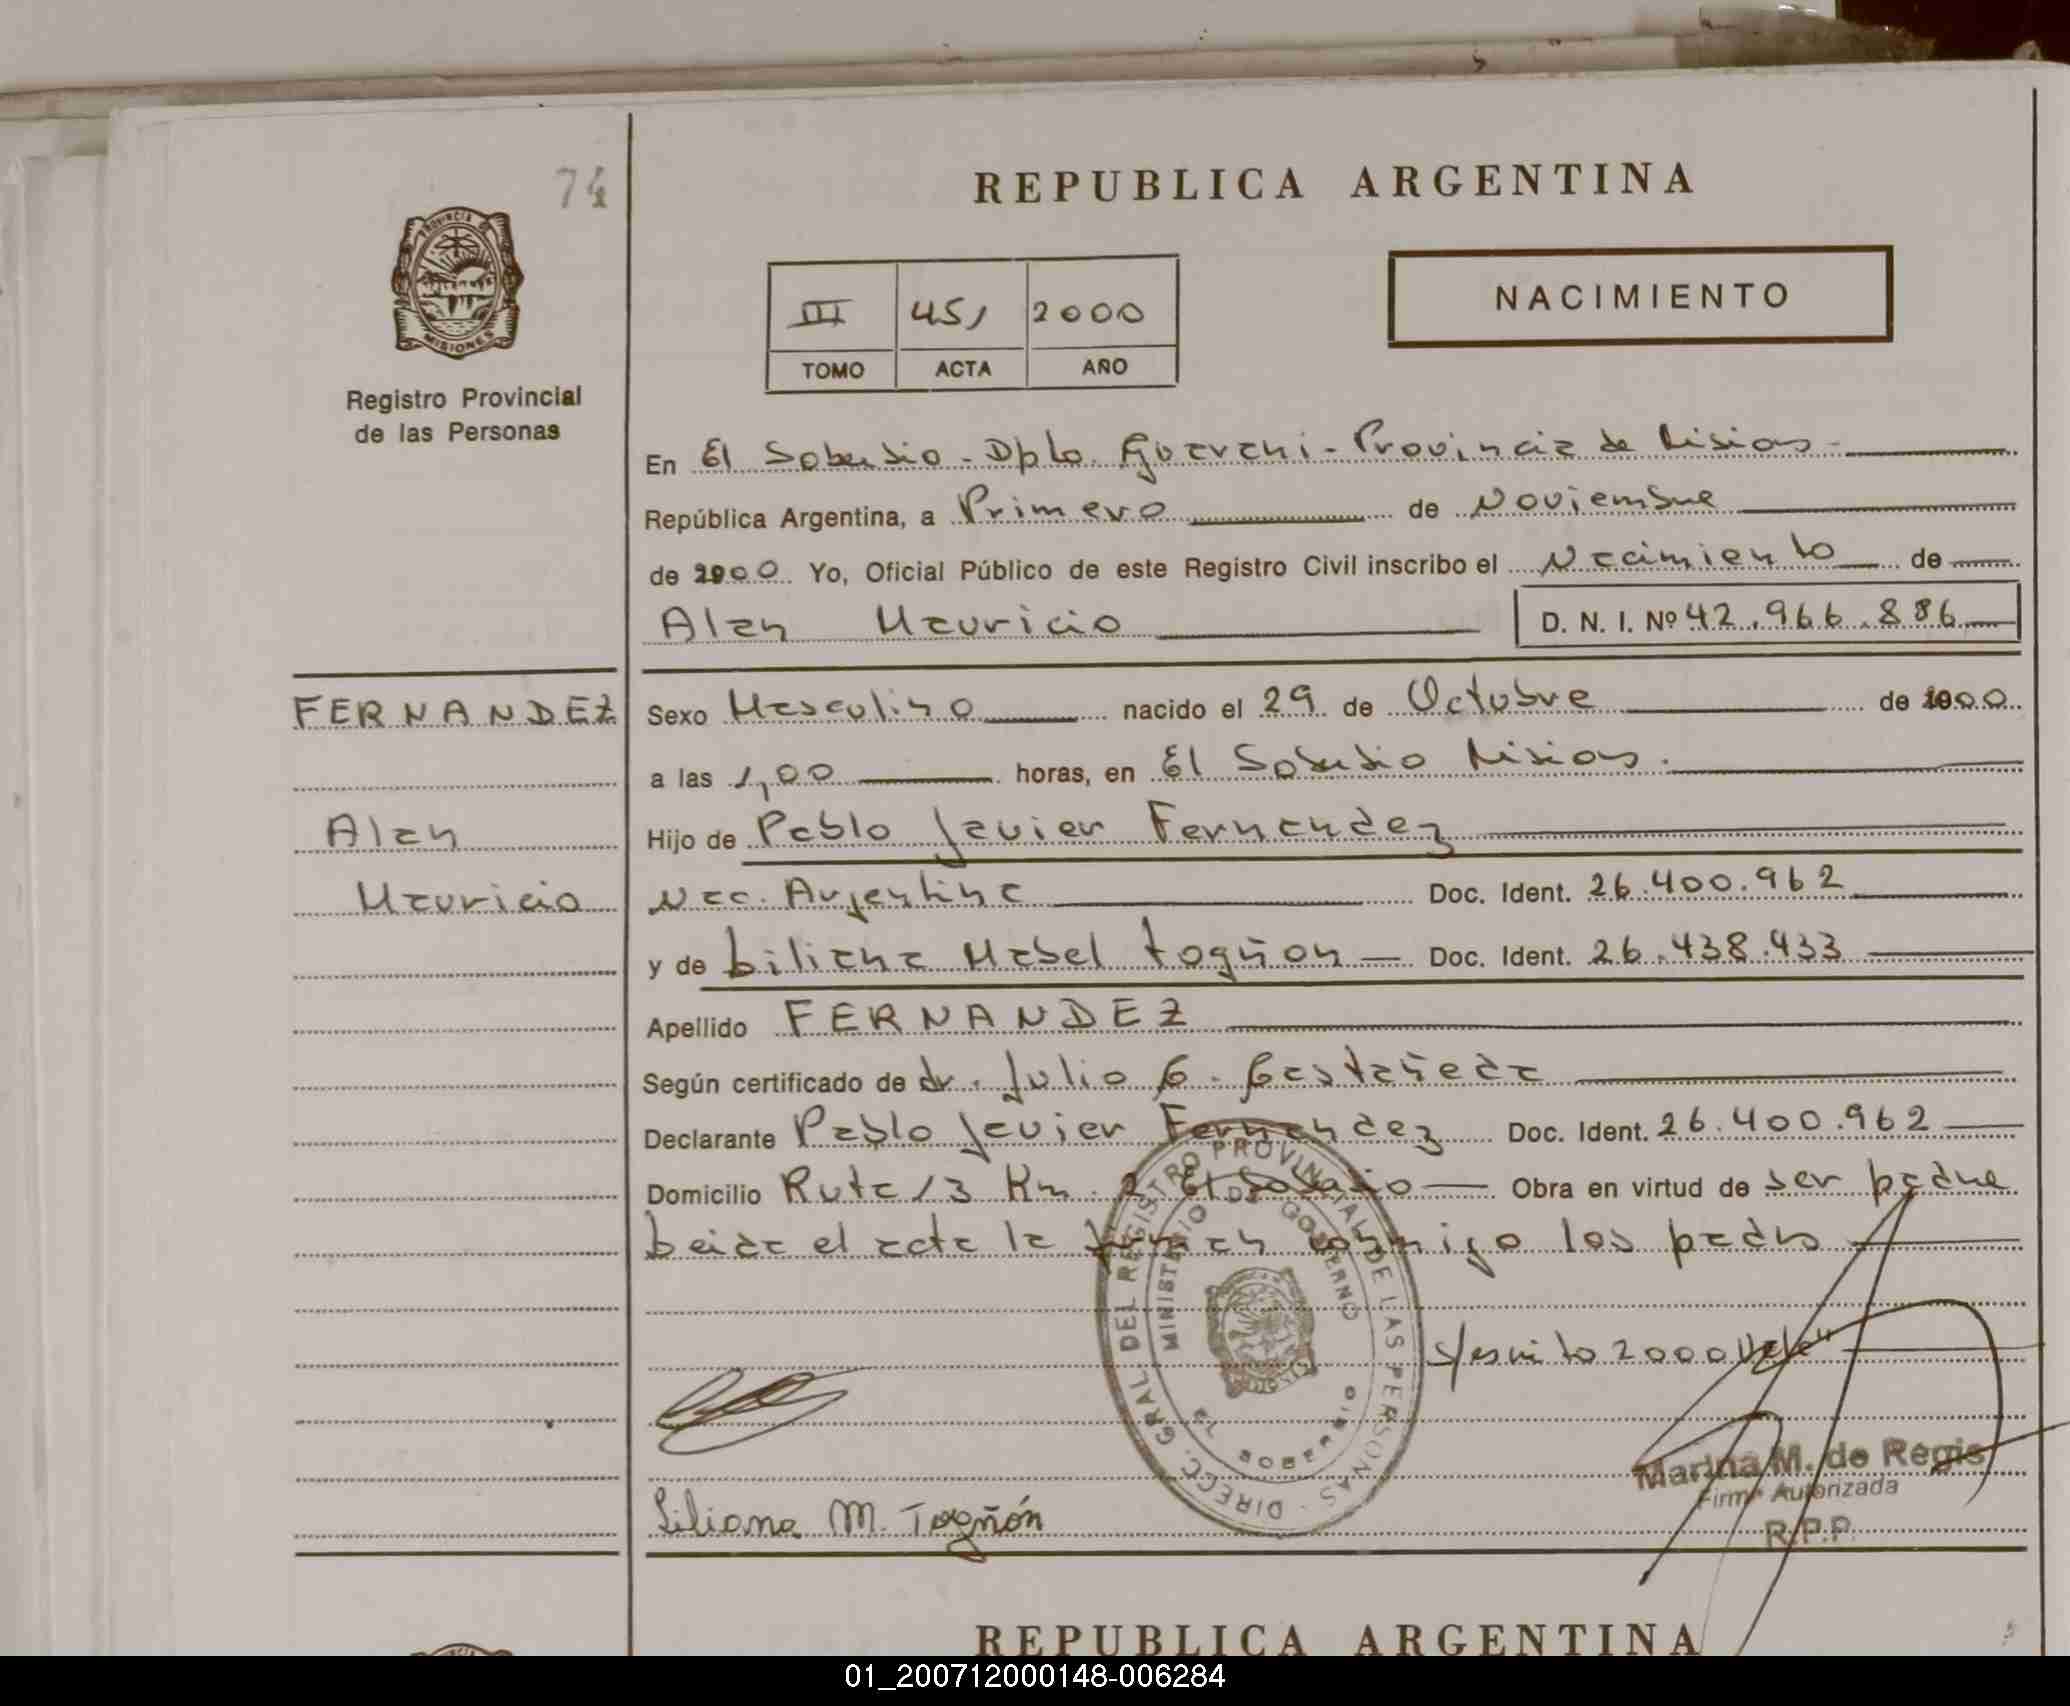 74
REPUBLICA ARGENTINA
PROVINCIA DE
MISIONES
NACIMIENTO
III 451 2000
TOMO ACTA AÑO
Registro Provincial
de las Personas
En El Soberbio - Dpto. Guarani - Provincia de Misiones -
República Argentina, a Primero de Noviembre
de 2000 Yo, Oficial Público de este Registro Civil inscribo el Nacimiento de
Alan Mauricio D. N. I. Nº 42.966.886
FERNANDEZ
Sexo Masculino nacido el 29 de Octubre de 2000
a las 1,00 horas, en El Soberbio Misiones.
Alan
Hijo de Pablo Javier Fernandez
Mauricio
Nac. Argentina Doc. Ident. 26.400.962
y de Liliana Mabel Togñon Doc. Ident. 26.438.433
Apellido FERNANDEZ
Según certificado de dr. Julio C. Castañeda
Declarante Pablo Javier Fernandez Doc. Ident. 26.400.962
Domicilio Ruta 13 Km. 2 El Soberbio Obra en virtud de ser padre
Leida el acta la firman conmigo los padres
DIRECC. GRAL DEL REGISTRO PROVINCIAL DE LAS PERSONAS -
MINISTERIO DE GOBIERNO
EL SOBERBIO
S/escrito 2000 Vale"
Marina M. de Regis
Firma Autorizada
R.P.P.
Liliana M. Togñón
REPUBLICA ARGENTINA
01_200712000148-006284